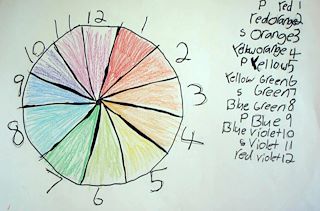 12
1
2
3
4
5
6
7
8
9
10
11
P red 1
redorange2
s orange3
Yelloworange 4
P Yellow5
Yellow Green6
s Green7
Blue Green8
P Blue 9
Blue violet10
s violet 11
red violet12